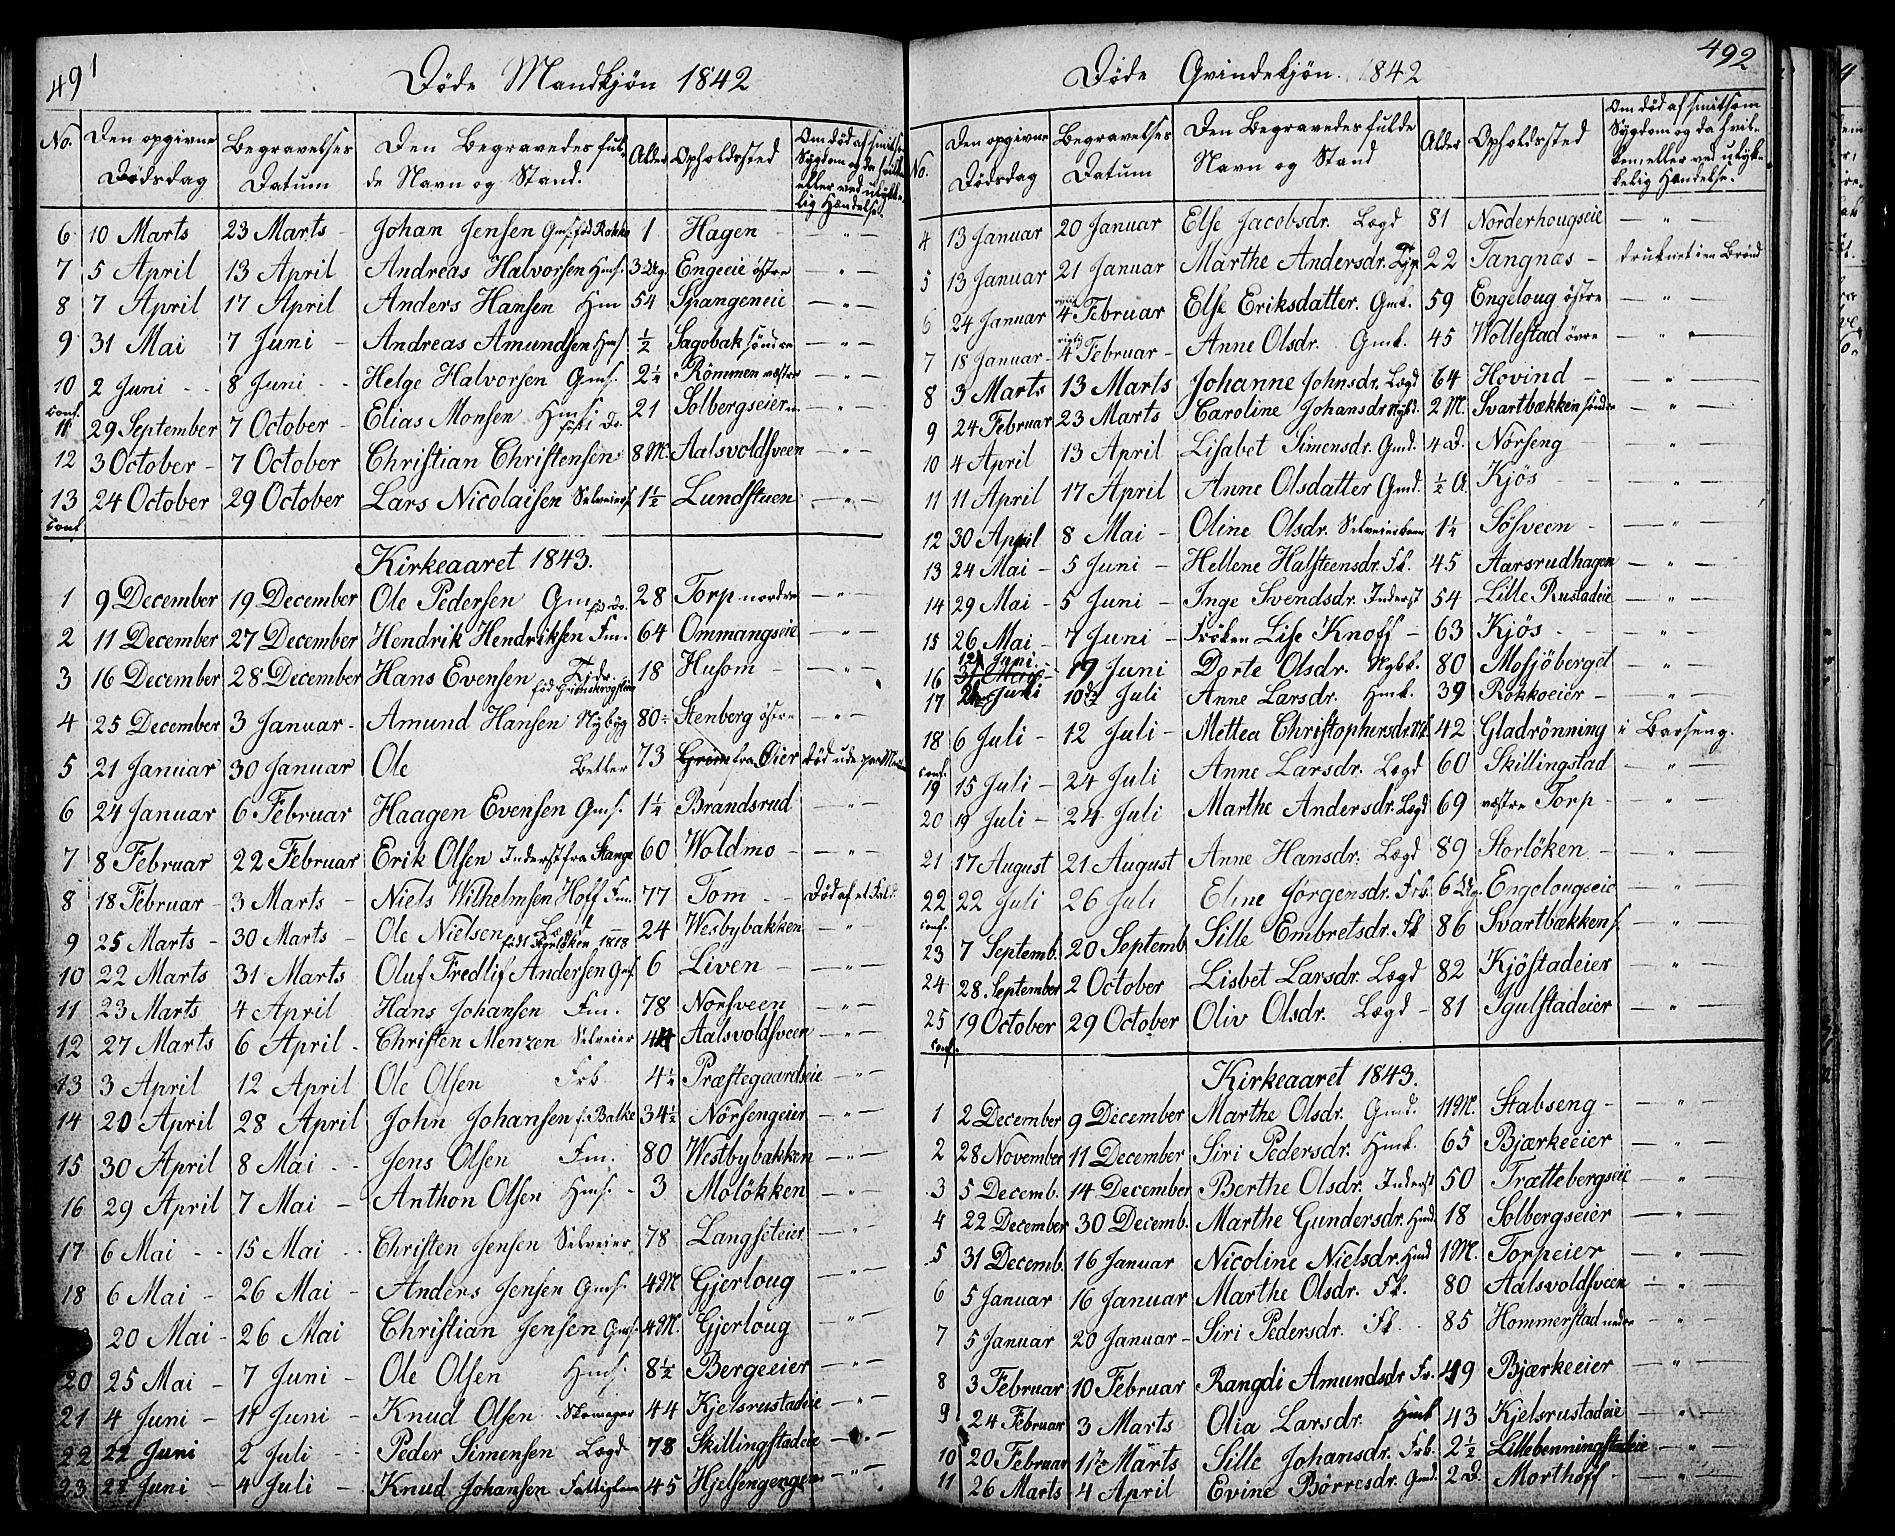 491
Døde Mandkjøn 1842
No. | Den opgivne Dødsdag | Begravelses Datum | Den Begravedes fulde Navn og Stand. | Alder | Opholdssted | Om død af smitsom Sygdom og da hvilken eller ved ulykkelig Hændelse.
6 | 10 Marts | 23 Marts - | Johan Jensen Gmf. fød Rokko | 1 | Hagen - | — " —
7 | 5 April | 13 April | Andreas Halvorsen Hmf. | 3 Ug. | Engeeie østre | — " —
8 | 7 April | 17 April | Anders Hansen Hm | 54 | Spangeneie | — " —
9 | 31 Mai | 7 Juni - | Andreas Amundsen Hmf | ½ | Sagobak søndre | — " —
10 | 2 Juni - - | 8 Juni - - | Helge Halvorsen Gmf. | 2¼ | Römmen næstre | — " —
conf.
11 | 29 September | 7 October - | Elias Monsen Hmf: født Do | 21 | Solbergseier | — " —
12 | 3 October - | 7 October | Christian Christensen | 8 M. | Aalsvoldsveen | — " —
13 | 24 October | 29 October | Lars Nicolaisen Selveiers | 1½ | Lundstuen | — " —
conf
Kirkeaaret 1843.
1 | 9 December | 19 December | Ole Pedersen Gm fød do. | 28 | Torp nordre | — " —
2 | 11 December | 27 December | Hendrik Hendriksen Fm. | 64 | Ommangseie | — " —
3 | 16 December | 28 December | Hans Evensen Tjdr. | 18 | Husom - | — " —
4 | 25 December | 3 Januar - | Amund Hansen Nybyg | 80 | Stenberg østre | — " —
5 | 21 Januar | 30 Januar | Ole Betler | 73 | fra Øier | død ude paa
6 | 24 Januar | 6 Februar | Haagen Evensen Gmf. | 1½ | Brandsrud | — " —
7 | 8 Februar | 22 Februar | Erik Olsen Inderst fra Stange | 60 | Woldmo - | — " —
8 | 18 Februar - | 3 Marts - | Niels Wilhelmsen Hoff Fm. | 77 | Tom - - | Død af et Fald
9 | 25 Marts - | 30 Marts - | Ole Nielsen Lægd født Storløken 1818 | 24 | Wesbybakken | — " —
10 | 22 Marts | 31 Marts | Oluf Fredlif Andersen Gmf | 6 | Liven - | — " —
11 | 23 Marts | 4 April | Hans Johansen Fm. | 78 | Norsveen | — " —
12 | 27 Marts | 6 April - | Christen Menzen Selveier | 44 | Aalsvoldsveen | — " —
13 | 3 April | 12 April | Ole Olsen Frb | 4½ | Præstegaardseie | — " —
14 | 20 April | 28 April | John Johansen f. Balke | 34½ | Nörsengeier | — " —
15 | 30 April | 8 Mai - - | Jens Olsen Fm. | 80 | Westbybakken | — " —
16 | 29 April | 7 Mai - | Anthon Olsen Hmf. - | 3 | Moløkken | — " —
17 | 6 Mai - - | 15 Mai - | Christen Jensen Selveier | 78 | Langseteier | — " —
18 | 6 Mai - | 26 Mai - | Anders Jensen Gmf. | 4 M | Gjerloug | — " —
20 Mai - | 26 Mai | Christian Jensen Gmf | 4 M. | Gjerloug | — " —
20 | 25 Mai - | 7 Juni - | Ole Olsen Hmf. | 8½ | Bergeeier | — " —
21 | 4 Juni - | 11 Juni - | Knud Olsen Skomager | 44 | Kjelsrustadeie | — " —
22 | 22 Juni | 2 Juli - | Peder Simensen Lægd | 78 | Skillingstadeie | — " —
23 | 28 Juni - | 4 Juli - | Knud Johansen Fattiglem | 45 | Hjelsengengen | — " —

492
Døde Qvindekjön. 1842
No. | Den opgivne Dødsdag | Begravelses Datum | Den Begravedes fulde Navn og Stand | Alder | Opholdssted | Om død af smitsom Sygdom og da hvilken, eller ved ulykkelig Hændelse.
4 | 13 Januar | 20 Januar | Else Jacobsdr. Lægd | 81 | Norderhougseie | — " —
5 | 13 Januar | 21 Januar | Marthe Andersdr. Tjp. | 22 | Tangnæs - | druknet i en Brønd
6 | 24 Januar | 4 Februar | Else Eriksdatter. Gmk. | 59 | Engeloug østre | — " —
7 | 18 Januar - | 4 Februar - | Anne Olsdr. Gmk. | 45 | Wollestad øvre | — " —
8 | 3 Marts | 13 Marts | Johanne Johnsdr. Lægd | 64 | Hovind - | — " —
9 | 24 Februar | 23 Marts | Caroline Johansdr Nybd. | 2 M. | Svartbækken søndre | — " —
10 | 4 April | 13 April | Lisabet Simensdr. Gmd. | 4 D. | Nörseng | — " —
11 | 11 April | 17 April | Anne Olsdatter Gmd. | ½ A | Kjös - | — " —
12 | 30 April | 8 Mai - | Oline Olsdr. Selveierbarn | 1¼ | Sösveen - | — " —
13 | 24 Mai - | 5 Juni - | Hellene Halsteensdr. Fk. | 45 | Aarsrudhagen | — " —
14 | 29 Mai - | 5 Juni - | Inge Svendsdr. Inderst | 54 | Lille Rustadeie | — " —
15 | 26 Mai - | 7 Juni - | Frøken Lise Knoff - | 63 | Kjös - | — " —
16 | 12 Juni. - | 19 Juni | Dorte Olsdr. Nybk. | 80 | Mosjöberget | — " —
17 | 26 Juni | 10de Juli | Anne Larsdr. Hmk. | 39 | Rokkoeier - | — " —
18 | 6 Juli - | 12 Juli - | Mettea Christophersdr. | 42 | Gladrönning | i Barseng.
conf.
19 | 15 Juli - | 24 Juli | Anne Larsdr. Lægd | 60 | Skillingstad | — " —
20 | 19 Juli - | 24 Juli | Marthe Andersdr. Lægd | 69 | næstre Torp - | — " —
21 | 17 August | 21 August | Anne Hansdr. Lægd | 89 | Storlöken - | — " —
22 | 22 Juli | 26 Juli | Eline Jørgensdr. Frb. | 6 Ug. | Engelougseie | — " —
conf.
23 | 7 Septemb. | 20 Septemb. | Sille Embretsdr. Fk | 86 | Svartbækken s. | — " —
24 | 28. September | 2 October | Lisbet Larsdr. Lægd | 82 | Kjöstadeier | — " —
25 | 19 October | 29 October | Oliv Olsdr. Lægd - | 81 | Igulstadeier | — " —
conf.
Kirkeaaret 1843.
1 | 2 December | 9 December | Marthe Olsdr. Gmd. | 11 M. | Stabseng - | — " —
2 | 28 November | 11 December | Siri Pedersdr. Hmk. | 65 | Bjærkeeier | — " —
3 | 5 Decemb. | 14 December | Berthe Olsdr. Inderst | 50 | Trættebergseie | — " —
4 | 22 December | 30 Decemb. | Marthe Gundersdr. Hmd. | 18 | Solbergseier | — " —
5 | 31 Decemb. | 16 Januar | Nicoline Nielsdr. Hmd | 1 M. | Torpeier | — " —
6 | 5 Januar | 16 Januar | Marthe Olsdr. Fk. | 80 | Aalsvoldsveen | — " —
7 | 5 Januar | 20 Januar - | Siri Pedersdr. Fk. | 85 | Hommerstad nedre | — " —
8 | 3 Februar | 10 Februar | Rangdi Amundsdr Fr. | 49 | Bjærkeeier | — " —
9 | 24 Februar | 3 Marts | Olia Larsdr. Hmk | 43 | Kjelsrustadeie | — " —
10 | 20 Februar | 11 Marts | Sille Johansdr. Frb. | 2½ | Lillebenningstadeie | — " —
11 | 26 Marts | 4 April | Evine Börresdr. Gmd. | 2 D. | Morthoff - | — " —